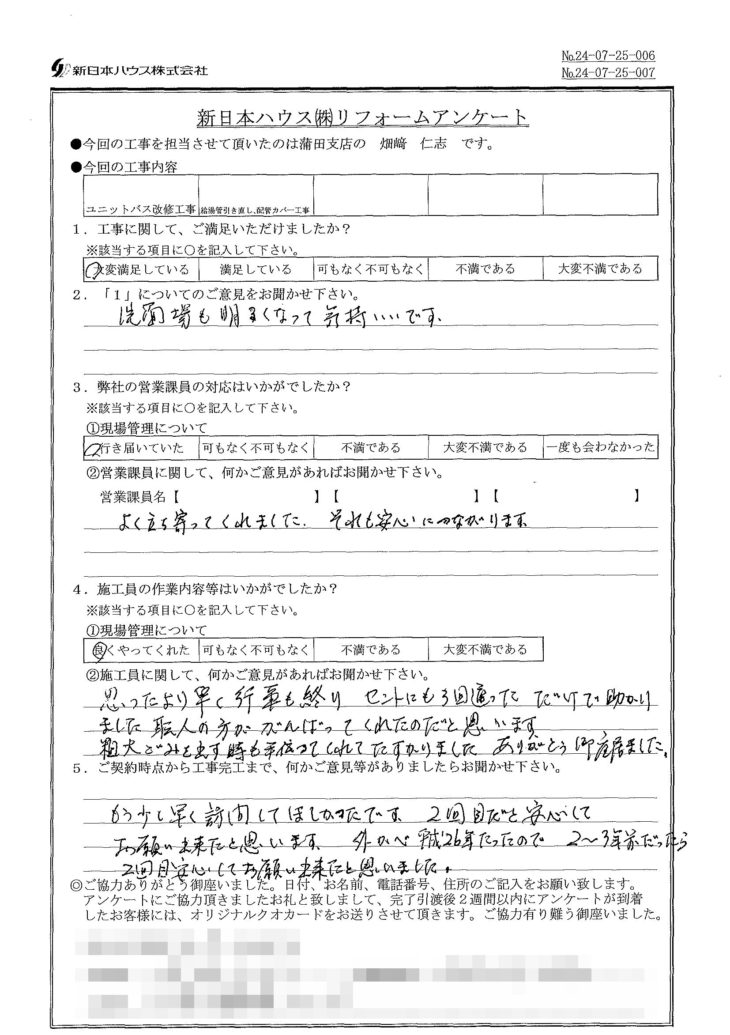 新日本ハウス株式会社
№24-07-25-006
№24-07-25-007
新日本ハウス㈱リフォームアンケート
●今回の工事を担当させて頂いたのは蒲田支店の　畑﨑　仁志　です。
●今回の工事内容
ユニットバス改修工事　給湯管引き直し、配管カバー工事
1．工事に関して、ご満足いただけましたか？
※該当する項目に○を記入して下さい。
大変満足している　満足している　可もなく不可もなく　不満である　大変不満である
2．「1」についてのご意見をお聞かせ下さい。
洗面場も明るくなって気持いいです.
3．弊社の営業課員の対応はいかがでしたか？
※該当する項目に○を記入して下さい。
①現場管理について
行き届いていた　可もなく不可もなく　不満である　大変不満である　一度も会わなかった
②営業課員に関して、何かご意見があればお聞かせ下さい。
営業課員名【　】【　】【　】
よく立ち寄ってくれました. それも安心につながります
4．施工員の作業内容等はいかがでしたか？
※該当する項目に○を記入して下さい。
①現場管理について
良くやってくれた　可もなく不可もなく　不満である　大変不満である
②施工員に関して、何かご意見があればお聞かせ下さい。
思ったより早く行事も終り セントにも3回通っただけで助かり
ました 職人の方ががんばってくれたのだと思います
粗大ごみを出す時も手伝ってくれてたすかりました ありがとう御座居ました。
5．ご契約時点から工事完工まで、何かご意見等がありましたらお聞かせ下さい。
もう少し早く訪問してほしかったです 2回目だと安心して
お願い出来たと思います 外かべ平成26年だったので 2〜3年前だったら
2回目安心してお願い出来たと思いました。
◎ご協力ありがとう御座いました。日付、お名前、電話番号、住所のご記入をお願い致します。
アンケートにご協力頂きましたお礼と致しまして、完了引渡後2週間以内にアンケートが到着
したお客様には、オリジナルクオカードをお送りさせて頂きます。ご協力有り難う御座いました。